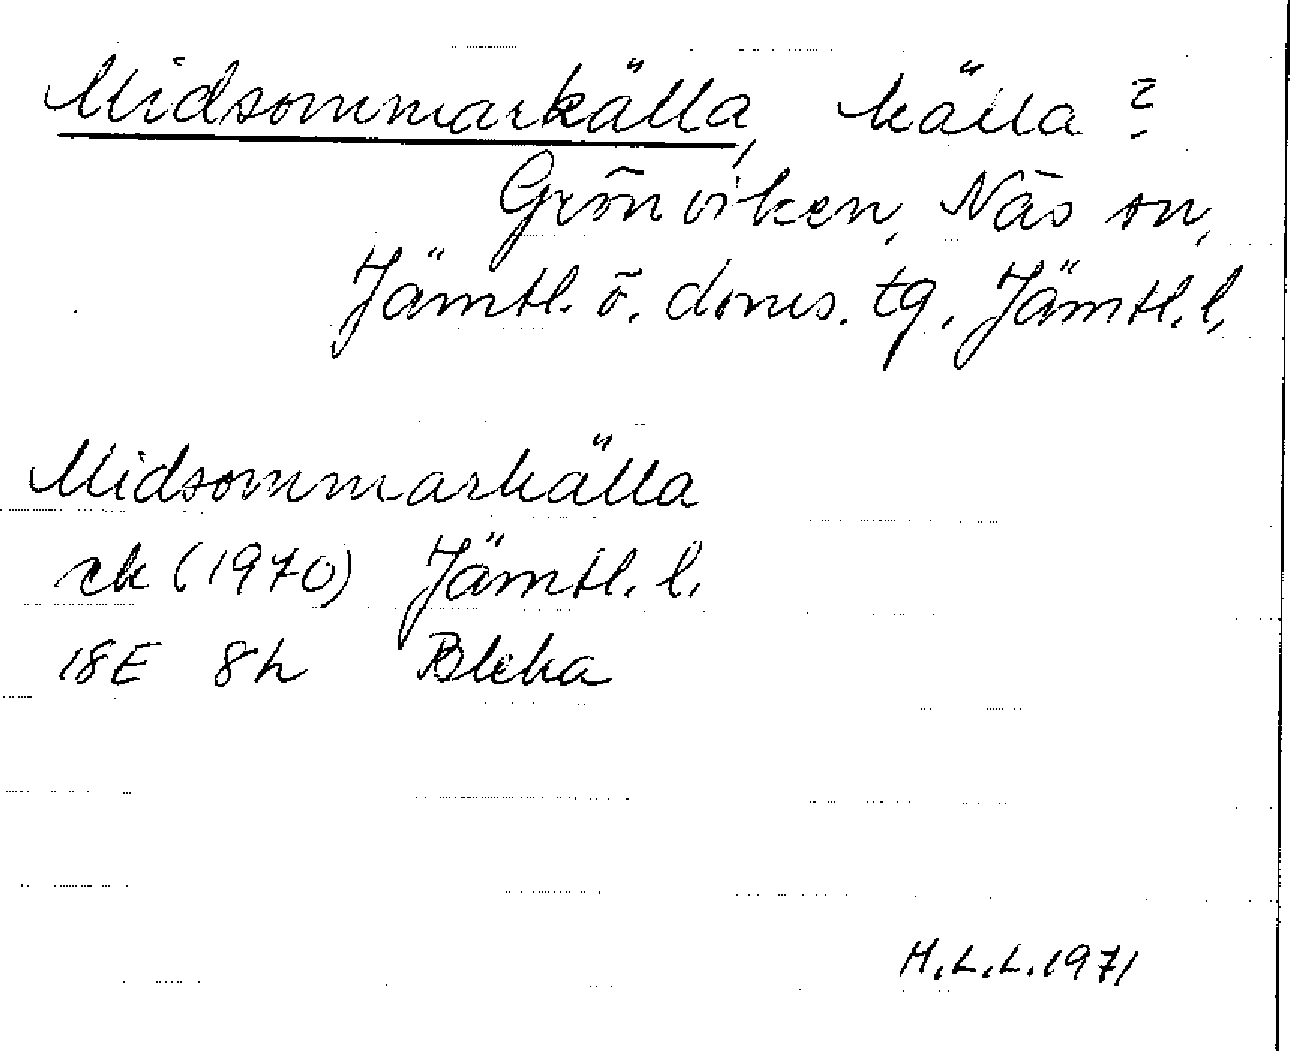 Midsommarkälla, källa?
Grönviken, Näs sn,
Jämtl. ö. doms. tg, Jämtl. l.
Midsommarkälla
ek (1970) Jämtl. l.
18E 8h Bleka
H.L.L. 1971